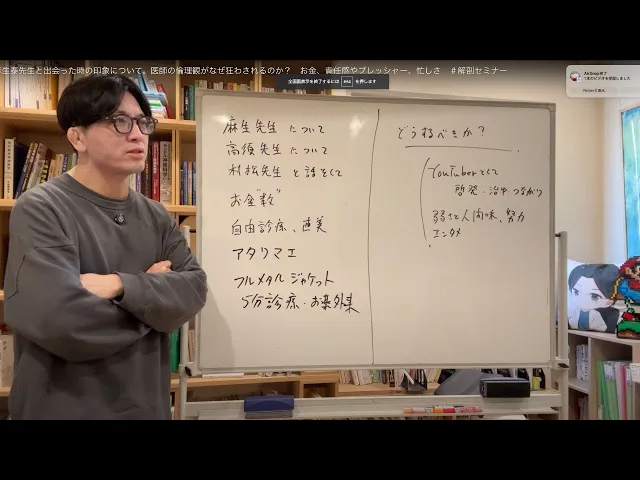 生泰先生と出会った時の印象について。医師の倫理観がなぜ狂わされるのか？　お金、責任感やプレッシャー、忙しさ　＃解剖セミナー
全画面表示を終了するには esc を押します
麻生先生について
高須先生について
村松先生と話をして
お金"教"
自由診療、直美
アタリマエ
フルメタルジャケット
5分診療・お薬外来
どうするべきか？
YouTuberとして
啓発・治療つながり
弱さと人間味、努力
エンタメ